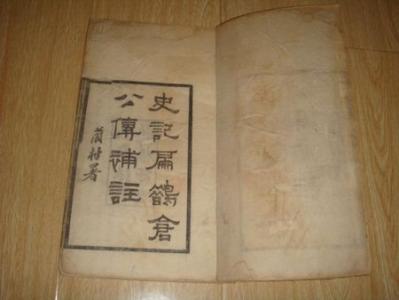 史記扁鵲倉
公傳補註